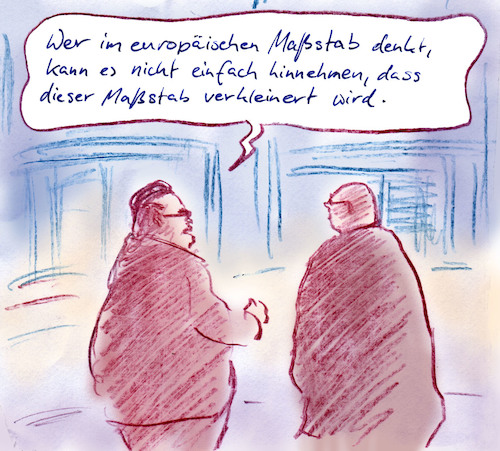 Wer im europäischen Maßstab denkt,
kann es nicht einfach hinnehmen, dass
dieser Maßstab verkleinert wird.